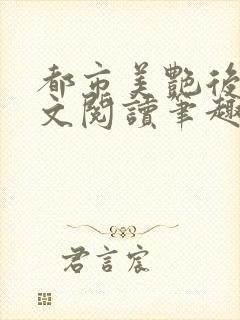 都市美艷後
文閱讀筆趣
君言宸